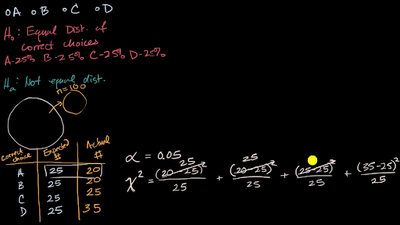 A B C D
H₀: Equal Dist. of
correct choices
A-25% B-25% C-25% D-25%
Hₐ: Not equal dist.
n=100
correct choice Expected # Actual #
A 25 20
B 25 20
C 25 25
D 25 35
α = 0.05
25 25
χ² = (20-25)²/25 + (20-25)²/25 + (25-25)²/25 + (35-25)²/25